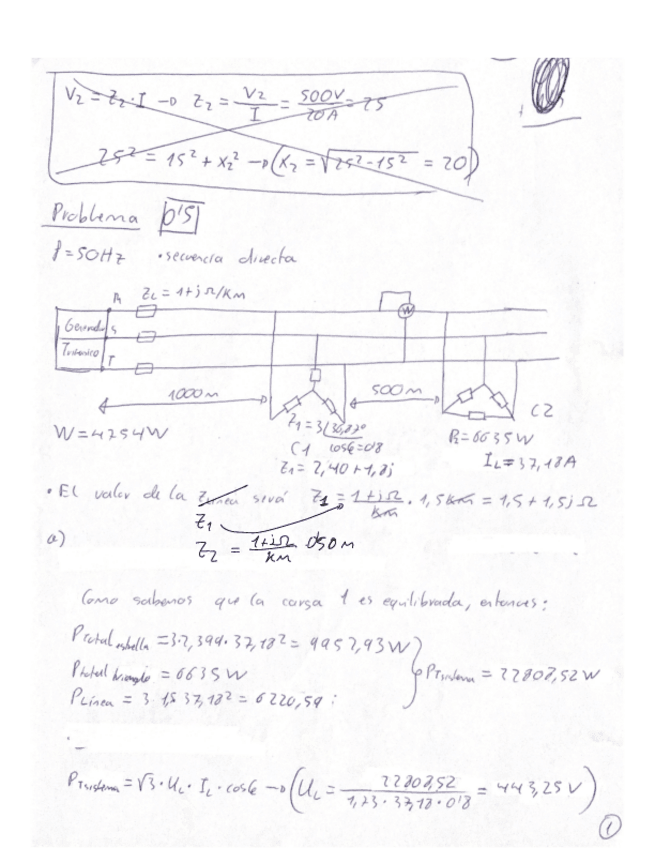 V2 = Z2 · I → Z2 = V2/I = 500V/20A = 25
25² = 15² + X2² → (X2 = √25²-15² = 20)
Problema 0'5
f=50Hz • secuencia directa
R ZL = 1+j Ω/KM
S
Trifásico T
1000m 500m
W=4754W
Z1=3∟36,87º
C1 cos6=0'8
Z1= 2,40+1,8j
C2
P2=6635W
IL=37,18A
• El valor de la Zlinea será Z1 = 1+jΩ/Km · 1,5Km = 1,5+1,5j Ω
Z1
a)
Z2 = 1+jΩ/KM 0'50 M
Como sabemos que la carga 1 es equilibrada, entonces:
Ptotal estrella = 3·2,399·37,18² = 9957,93W
Ptotal triangulo = 6635W
PTsistema = 22808,52W
PLínea = 3·1,5·37,18² = 6220,59 :
PTsistema = √3 · UL · IL · cos6 → (UL = 22808,52/1,73·37,18·0'8 = 443,25V)
1